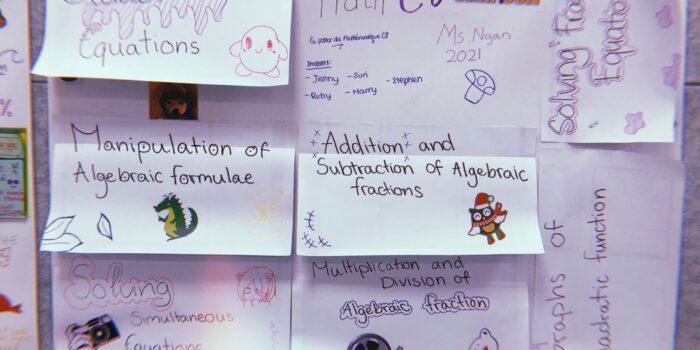 Equations
Math
Le poster du Mathématique C8
Ms. Ngan
2021
Students:
- Jenny - Suri - Stephen
- Ruby - Harry
Solving Fra
Equation
Manipulation of
Algebraic formulae
Addition and
Subtraction of Algebraic
fractions
Solving
Simultaneous
Equations
Multiplication and
Division of
Algebraic fraction
raphs of
uadratic function
%
THE